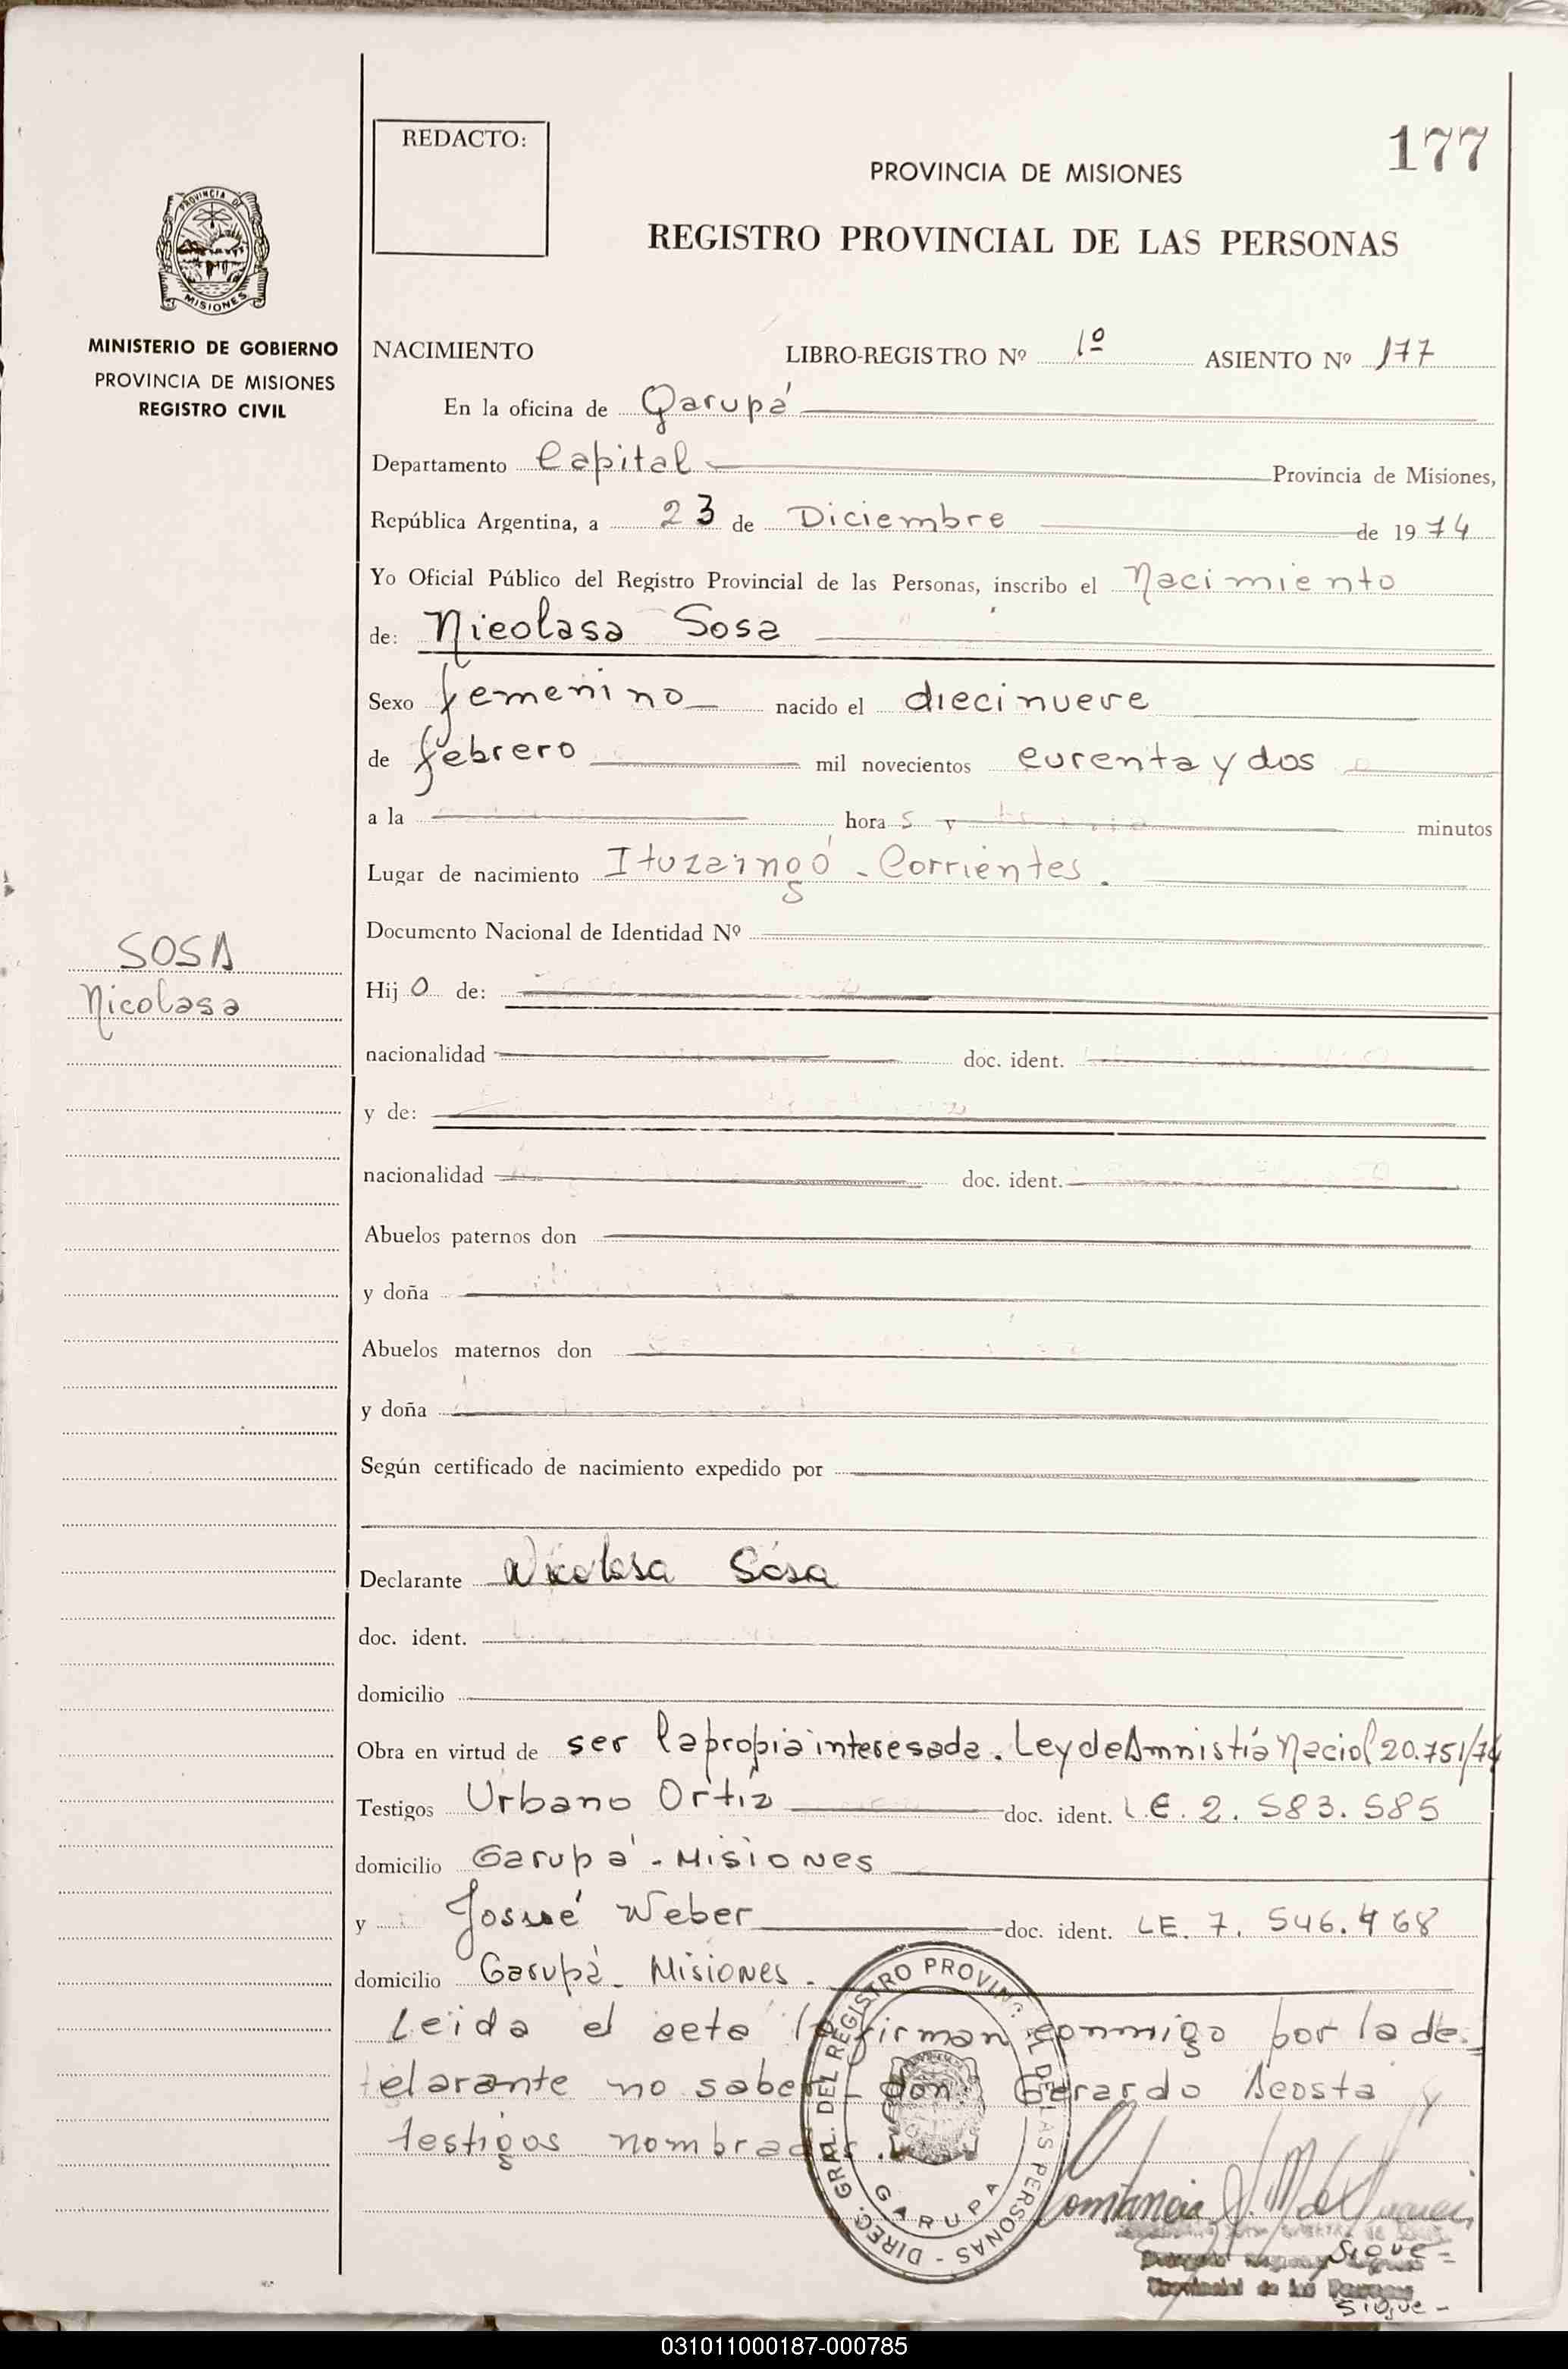 REDACTO:
177
PROVINCIA DE MISIONES
REGISTRO PROVINCIAL DE LAS PERSONAS
PROVINCIA D
MISIONES
MINISTERIO DE GOBIERNO
PROVINCIA DE MISIONES
REGISTRO CIVIL
NACIMIENTO LIBRO-REGISTRO Nº 1º ASIENTO Nº 177
En la oficina de Garupá
Departamento Capital Provincia de Misiones,
República Argentina, a 23 de Diciembre de 1974
Yo Oficial Público del Registro Provincial de las Personas, inscribo el Nacimiento
de: Nicolasa Sosa
Sexo femenino nacido el diecinueve
de febrero mil novecientos curenta y dos
a la hora s y minutos
Lugar de nacimiento Ituzaingó - Corrientes.
Documento Nacional de Identidad Nº
SOSA
Nicolasa
Hij o de:
nacionalidad doc. ident.
y de:
nacionalidad doc. ident.
Abuelos paternos don
y doña
Abuelos maternos don
y doña
Según certificado de nacimiento expedido por
Declarante Nicolasa Sosa
doc. ident.
domicilio
Obra en virtud de ser la propia interesada. Ley de Amnistía Naciol 20.751/74
Testigos Urbano Ortíz doc. ident. L.E. 2.583.585
domicilio Garupá - Misiones
y Josué Weber doc. ident. LE. 7.546.468
domicilio Garupá - Misiones.
Leida el acta la firman conmigo por la de-
clarante no saber don Gerardo Acosta y
testigos nombrados.
DIREC. GRAL. DEL REGISTRO PROVINC. DE LAS PERSONAS - GARUPA
Sigue-
Provincial de las Personas
Sigue-
031011000187-000785